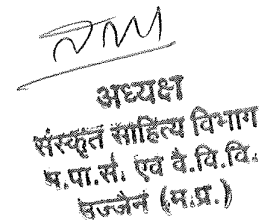 अध्यक्ष
संस्कृत साहित्य विभाग
म.पा.सं. एवं वै.वि.वि.
उज्जैन (म.प्र.)